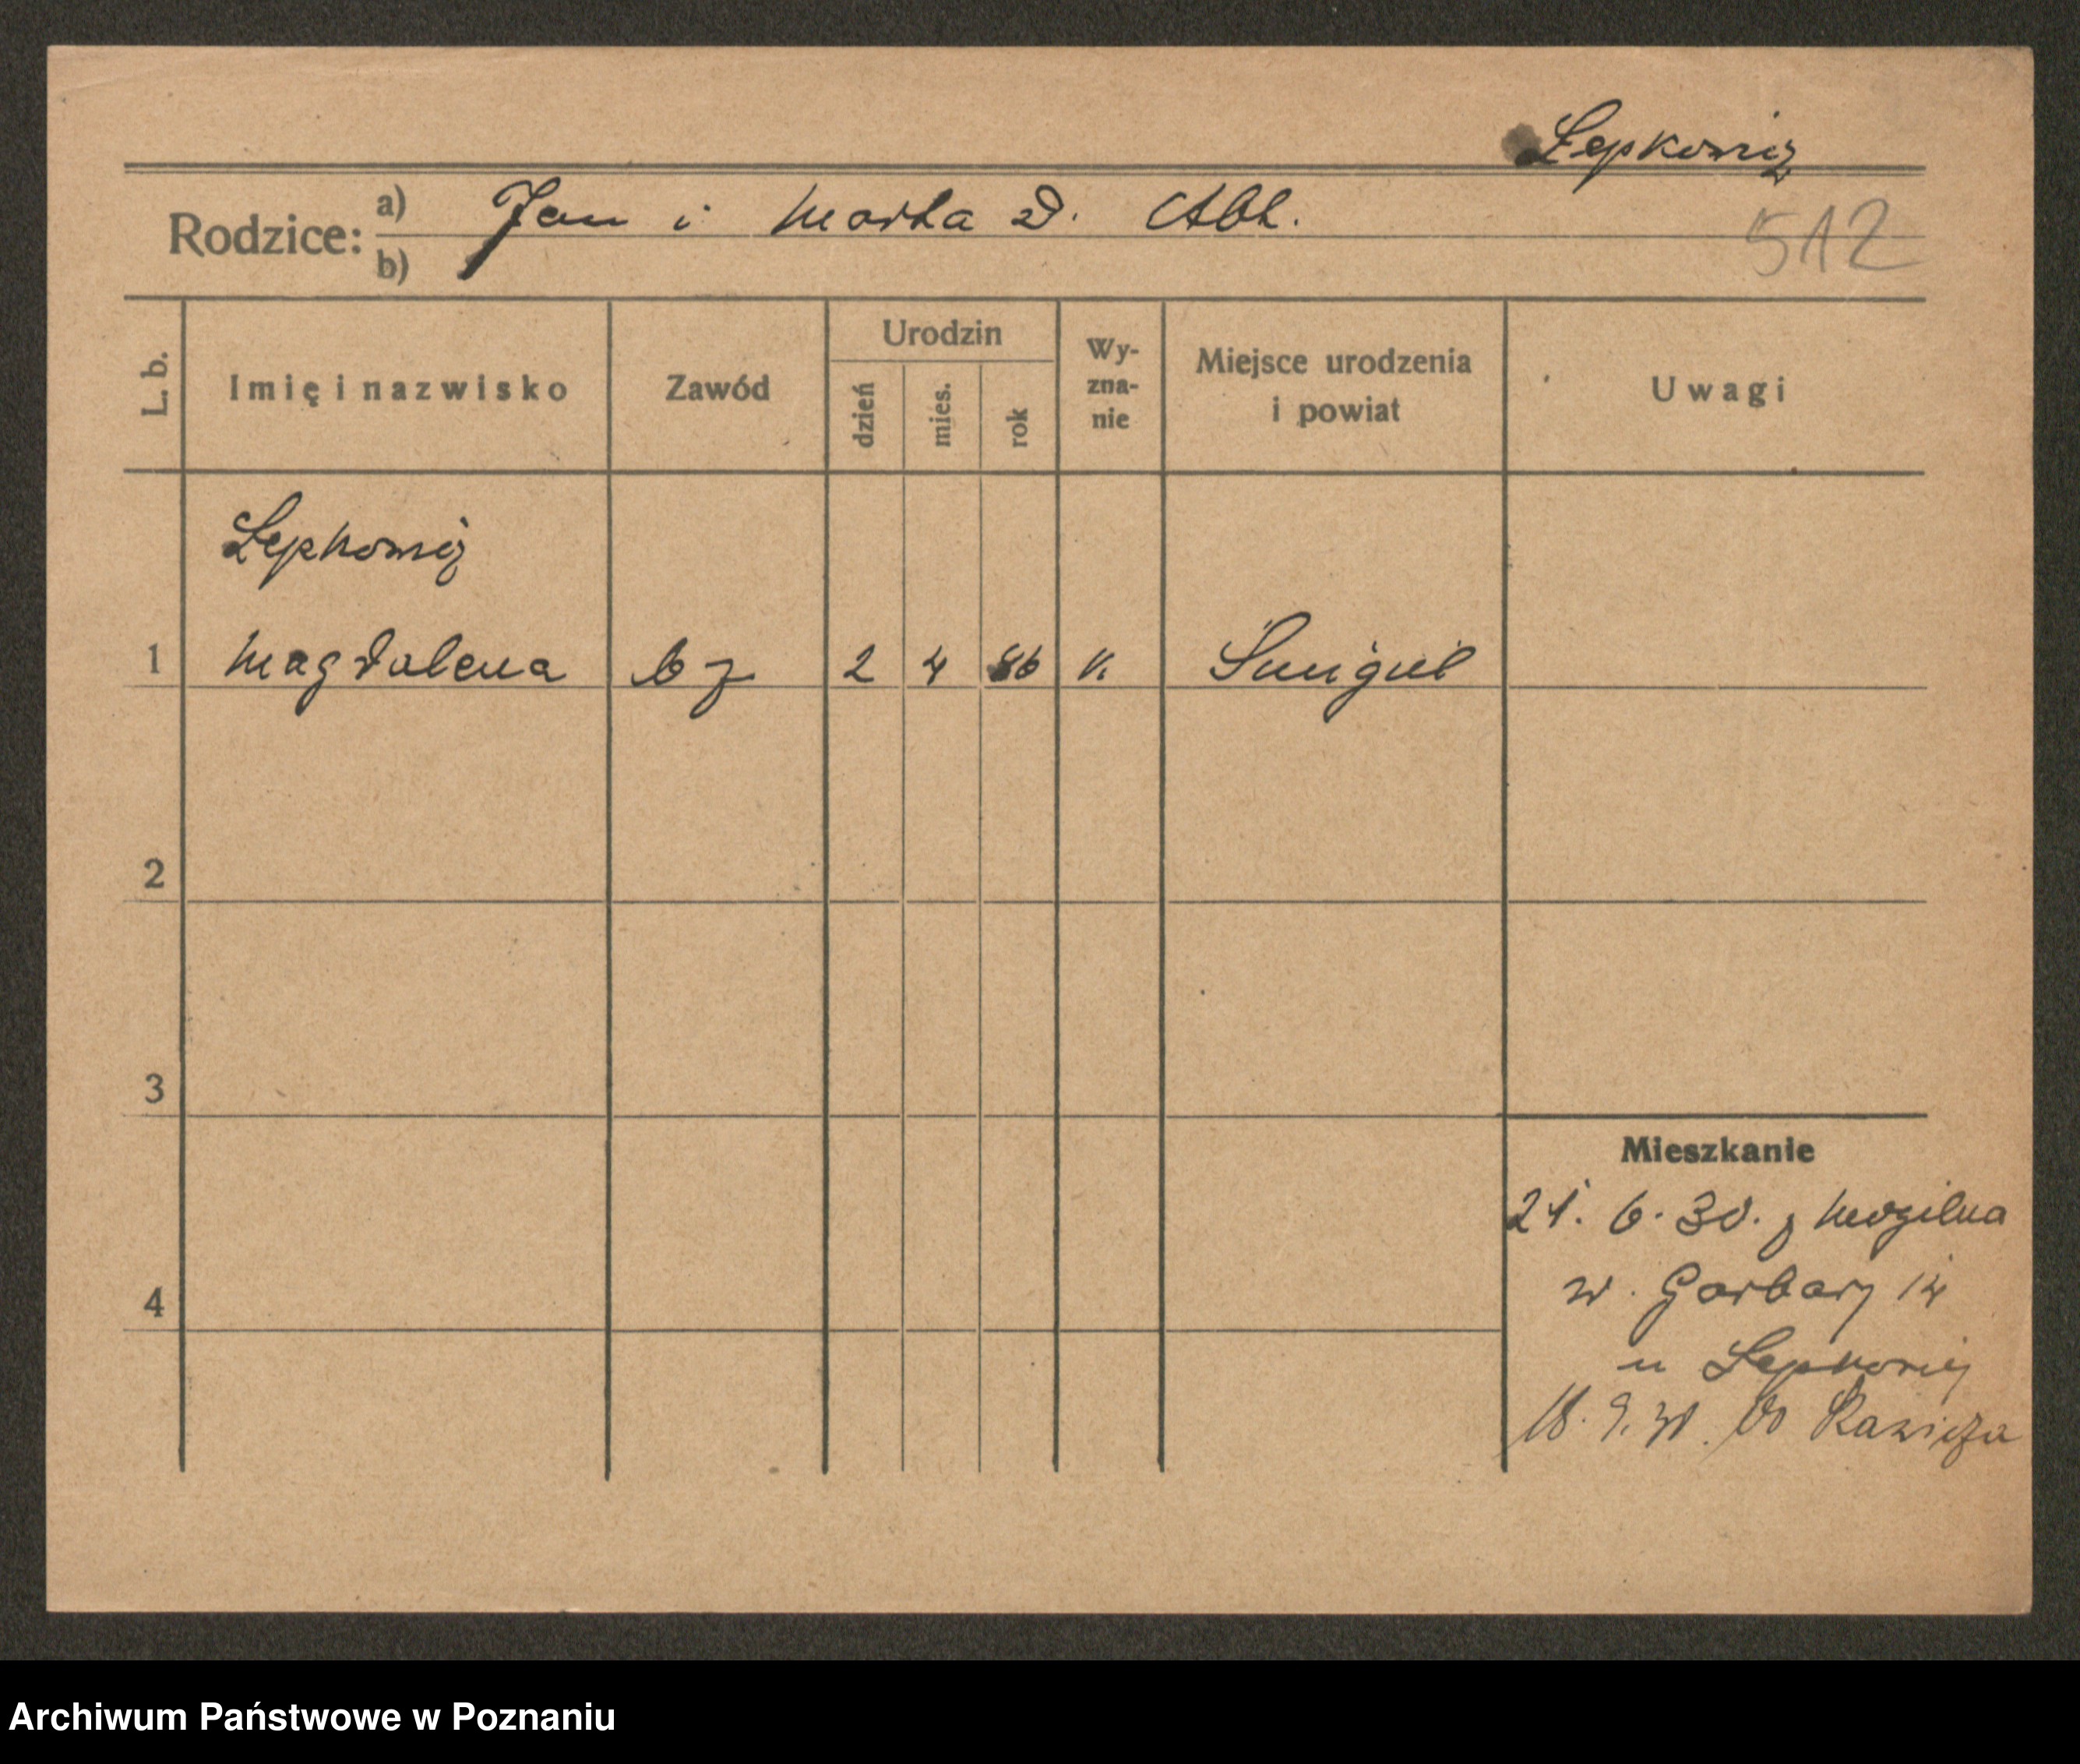 Lepkowicz
Rodzice: a) Jan i Marta d. Abt.
b)
512
L. b. Imię i nazwisko Zawód Urodzin dzień mies. rok Wy-zna-nie Miejsce urodzenia i powiat Uwagi
Lepkowicz
1 Magdalena bz 2 4 86 k. Śmigiel
2
3
Mieszkanie
21. 6. 30. z Mogilna
4 w. Garbary 14
u Lepkowicz
18. 9. 30. do Rawicza
Archiwum Państwowe w Poznaniu